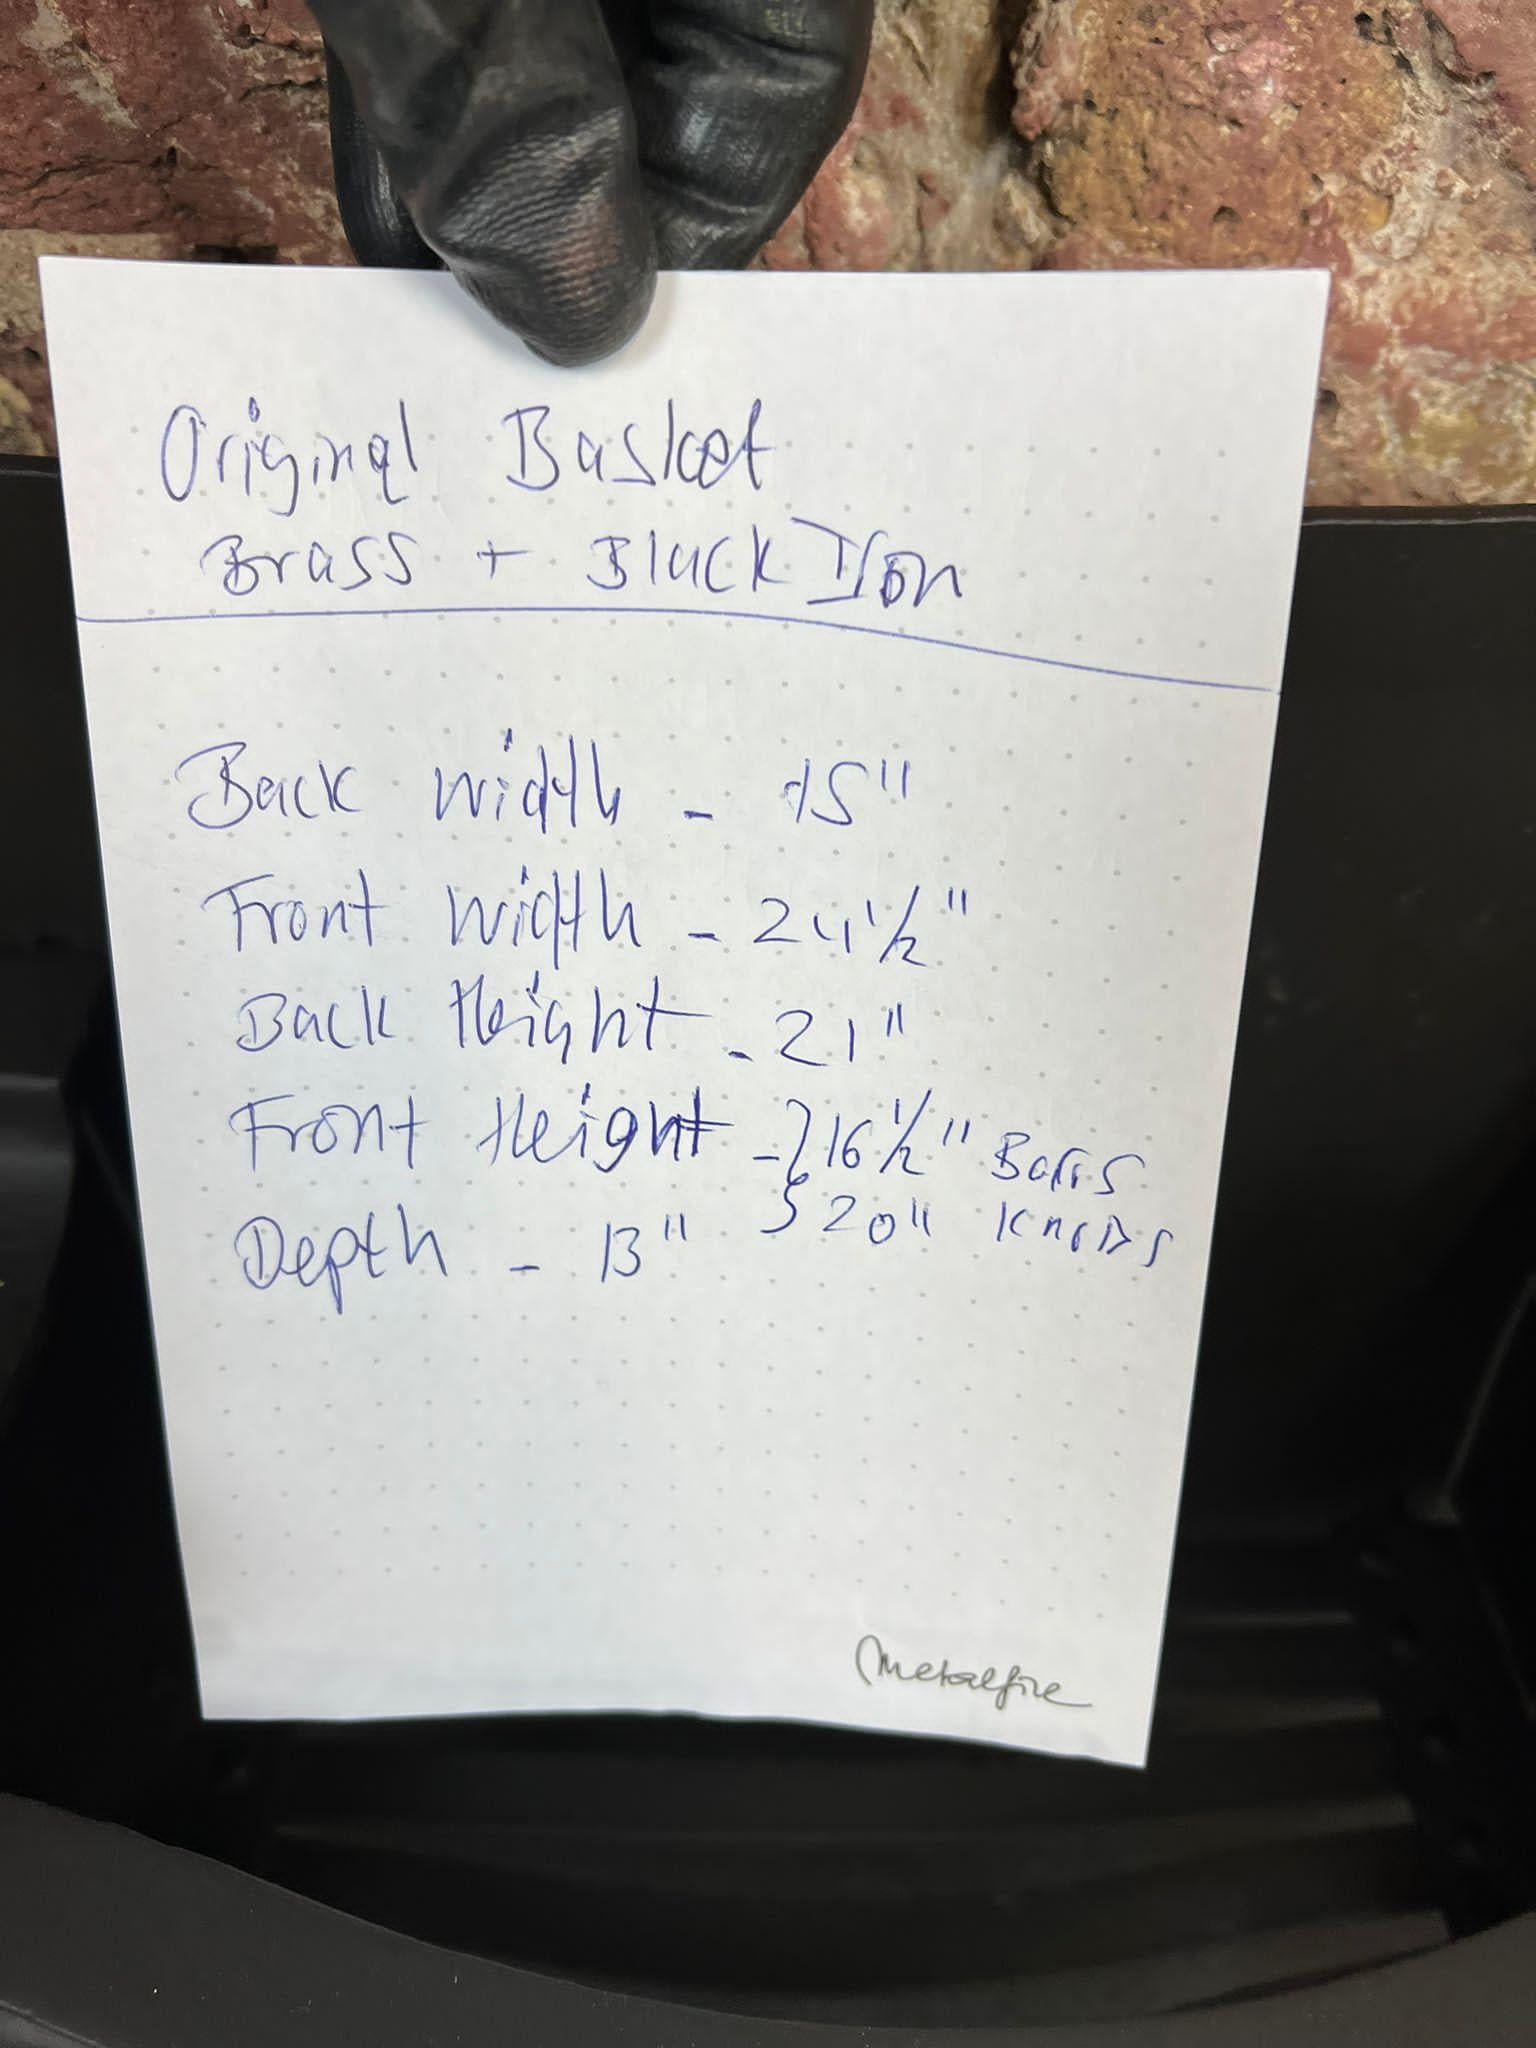 Original Basket
Brass + Black Iron
Back width - 15"
Front width - 24 1/2"
Back Height - 21"
Front Height - } 16 1/2" Bars
} 20" Knobs
Depth - 13"
Metalfire